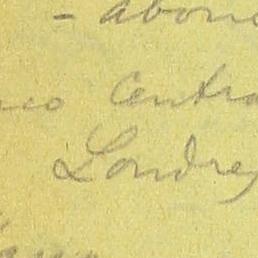 - abon
nco Centra
Londres